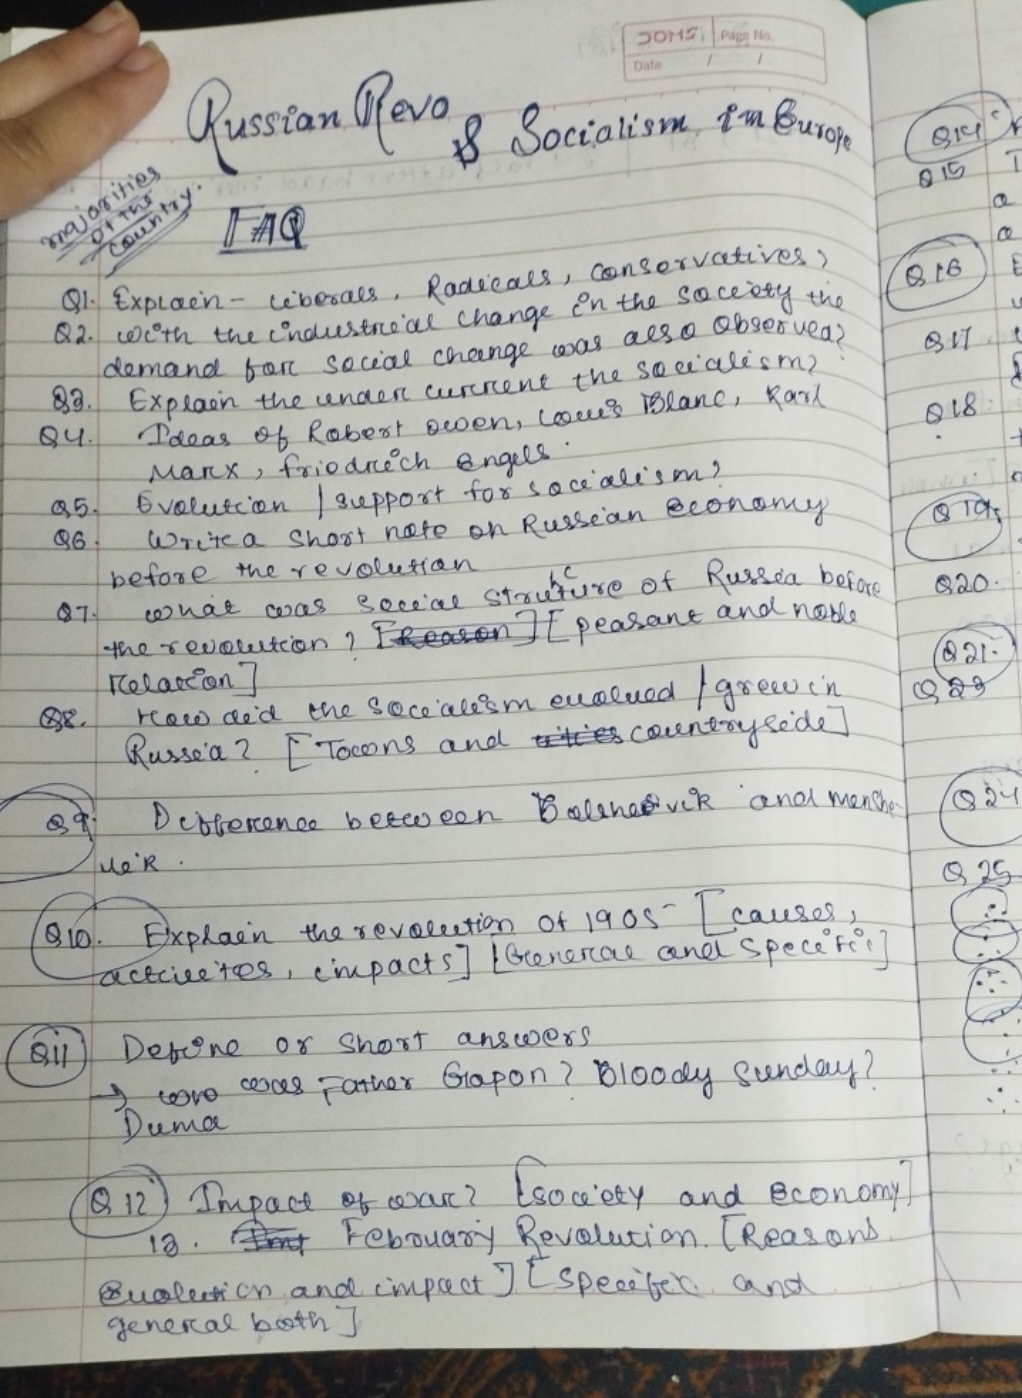 DOMS Page No.
Date / /
Russian Revo & Socialism in Europe
majorities
of the
country.
FAQ
Q1. Explain - Liberals, Radicals, Conservatives,
Q2. With the industrial change in the society the
demand for social change was also observed?
Q3. Explain the under current the socialism?
Q4. Ideas of Robert Owen, Louis Blanc, Karl
Marx, friedrich Engels.
Q5. Evolution / support for socialism?
Q6. Write a short note on Russian economy
before the revolution
Q7. What was social structure of Russia before
the revolution? [Reason] [peasant and noble
Relation]
Q8. How did the socialism evolved / grew in
Russia? [Towns and cities countryside]
Q9. Difference between Bolshevik and menshe
vik.
Q10. Explain the revolution of 1905 - [causes,
activites, impacts] [General and Specific]
Q11 Define or Short answers
→ who was Father Gapon? Bloody Sunday?
Duma
Q12 Impact of war? [society and economy]
13. February Revolution. [Reasons
Evolution and impact] [specific and
general both]
Q14
Q15
Q16
Q17
Q18
Q19
Q20.
Q21.
Q23
Q24
Q25